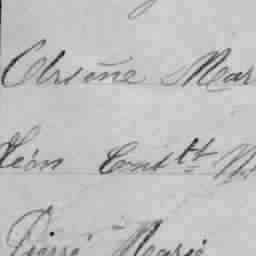 Arsène Mar
Léon Const
Pierre Marie